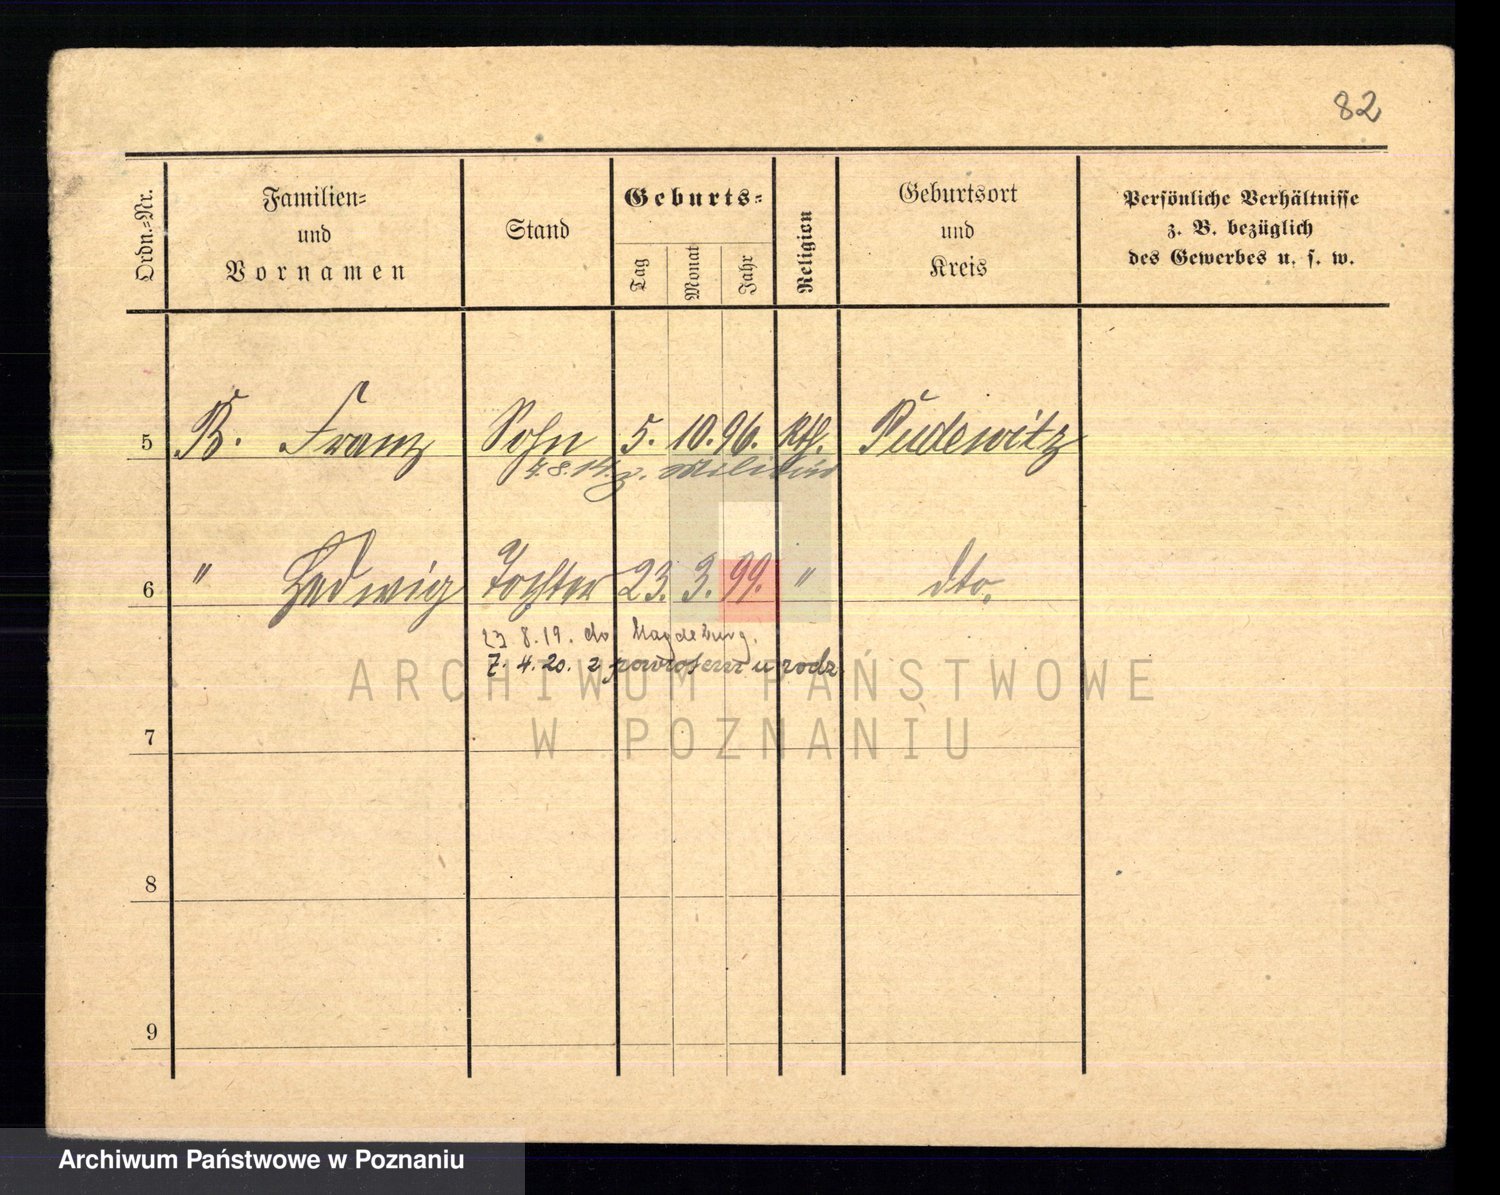 82
Ordn.-Nr.
Familien-
und
Vornamen
Stand
Geburts-
Tag
Monat
Jahr
Religion
Geburtsort
und
Kreis
Persönliche Verhältnisse
z. B. bezüglich
des Gewerbes u. s. w.
5 B. Franz Sohn 5. 10. 96. Kth. Pudewitz
4.8.14. z. Militär
6 " Hedwig Tochter 23. 3. 99. " dto.
23 8.19. do Magdeburg.
7. 4. 20. z powrotem u rodz
7
8
9
ARCHIWUM PAŃSTWOWE
W POZNANIU
Archiwum Państwowe w Poznaniu